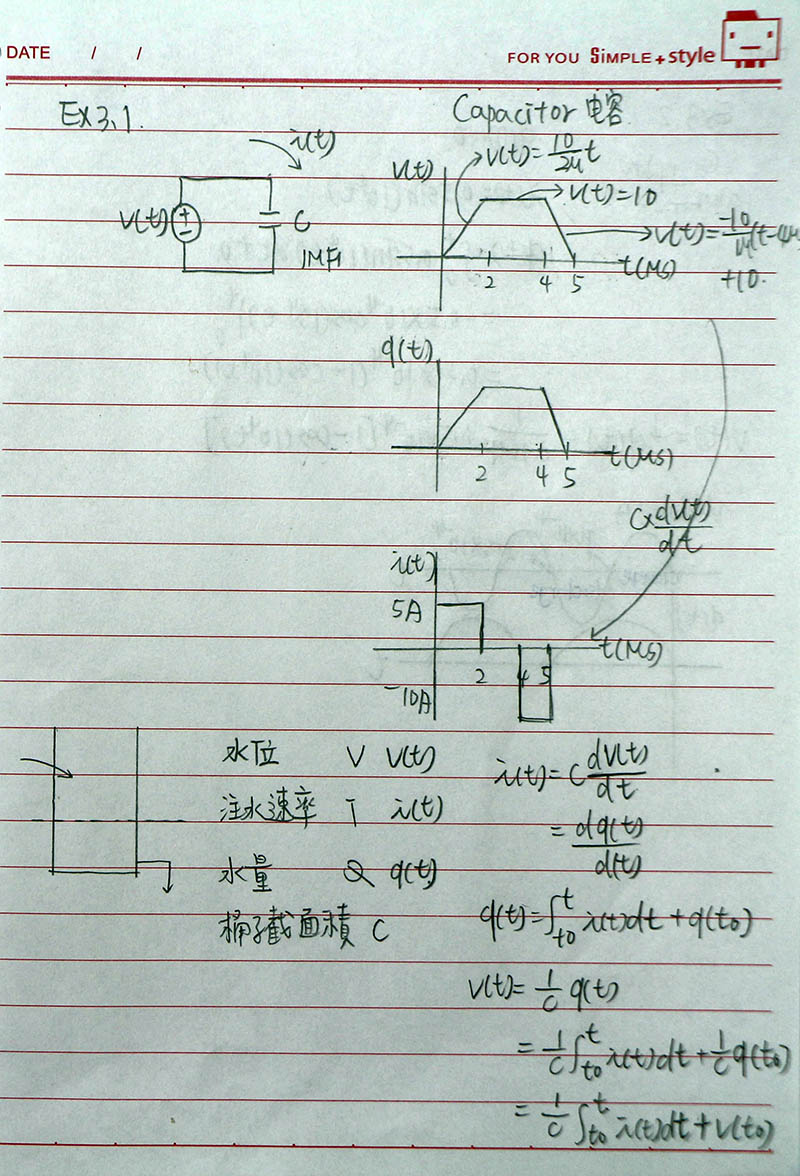 DATE / /
FOR YOU SiMPLE + style
Ex3.1.
Capacitor 电容
i(t)
V(t)
C
1MF
V(t)
V(t)=10/2μ t
V(t)=10
V(t)=-10/1μ(t-4μ
+10.
2 4 5 t(Ms)
q(t)
2 4 5 t(Ms)
C×dV(t)/dt
i(t)
5A
2 4 5 t(Ms)
-10A
水位 V V(t)
注水速率 I i(t)
水量 Q q(t)
桶子截面積 C
i(t)=C dV(t)/dt
=dq(t)/d(t)
q(t)=∫t0^t i(t)dt+q(t0)
V(t)=1/C q(t)
=1/C ∫t0^t i(t)dt+1/C q(t0)
=1/C ∫t0^t i(t)dt+V(t0)